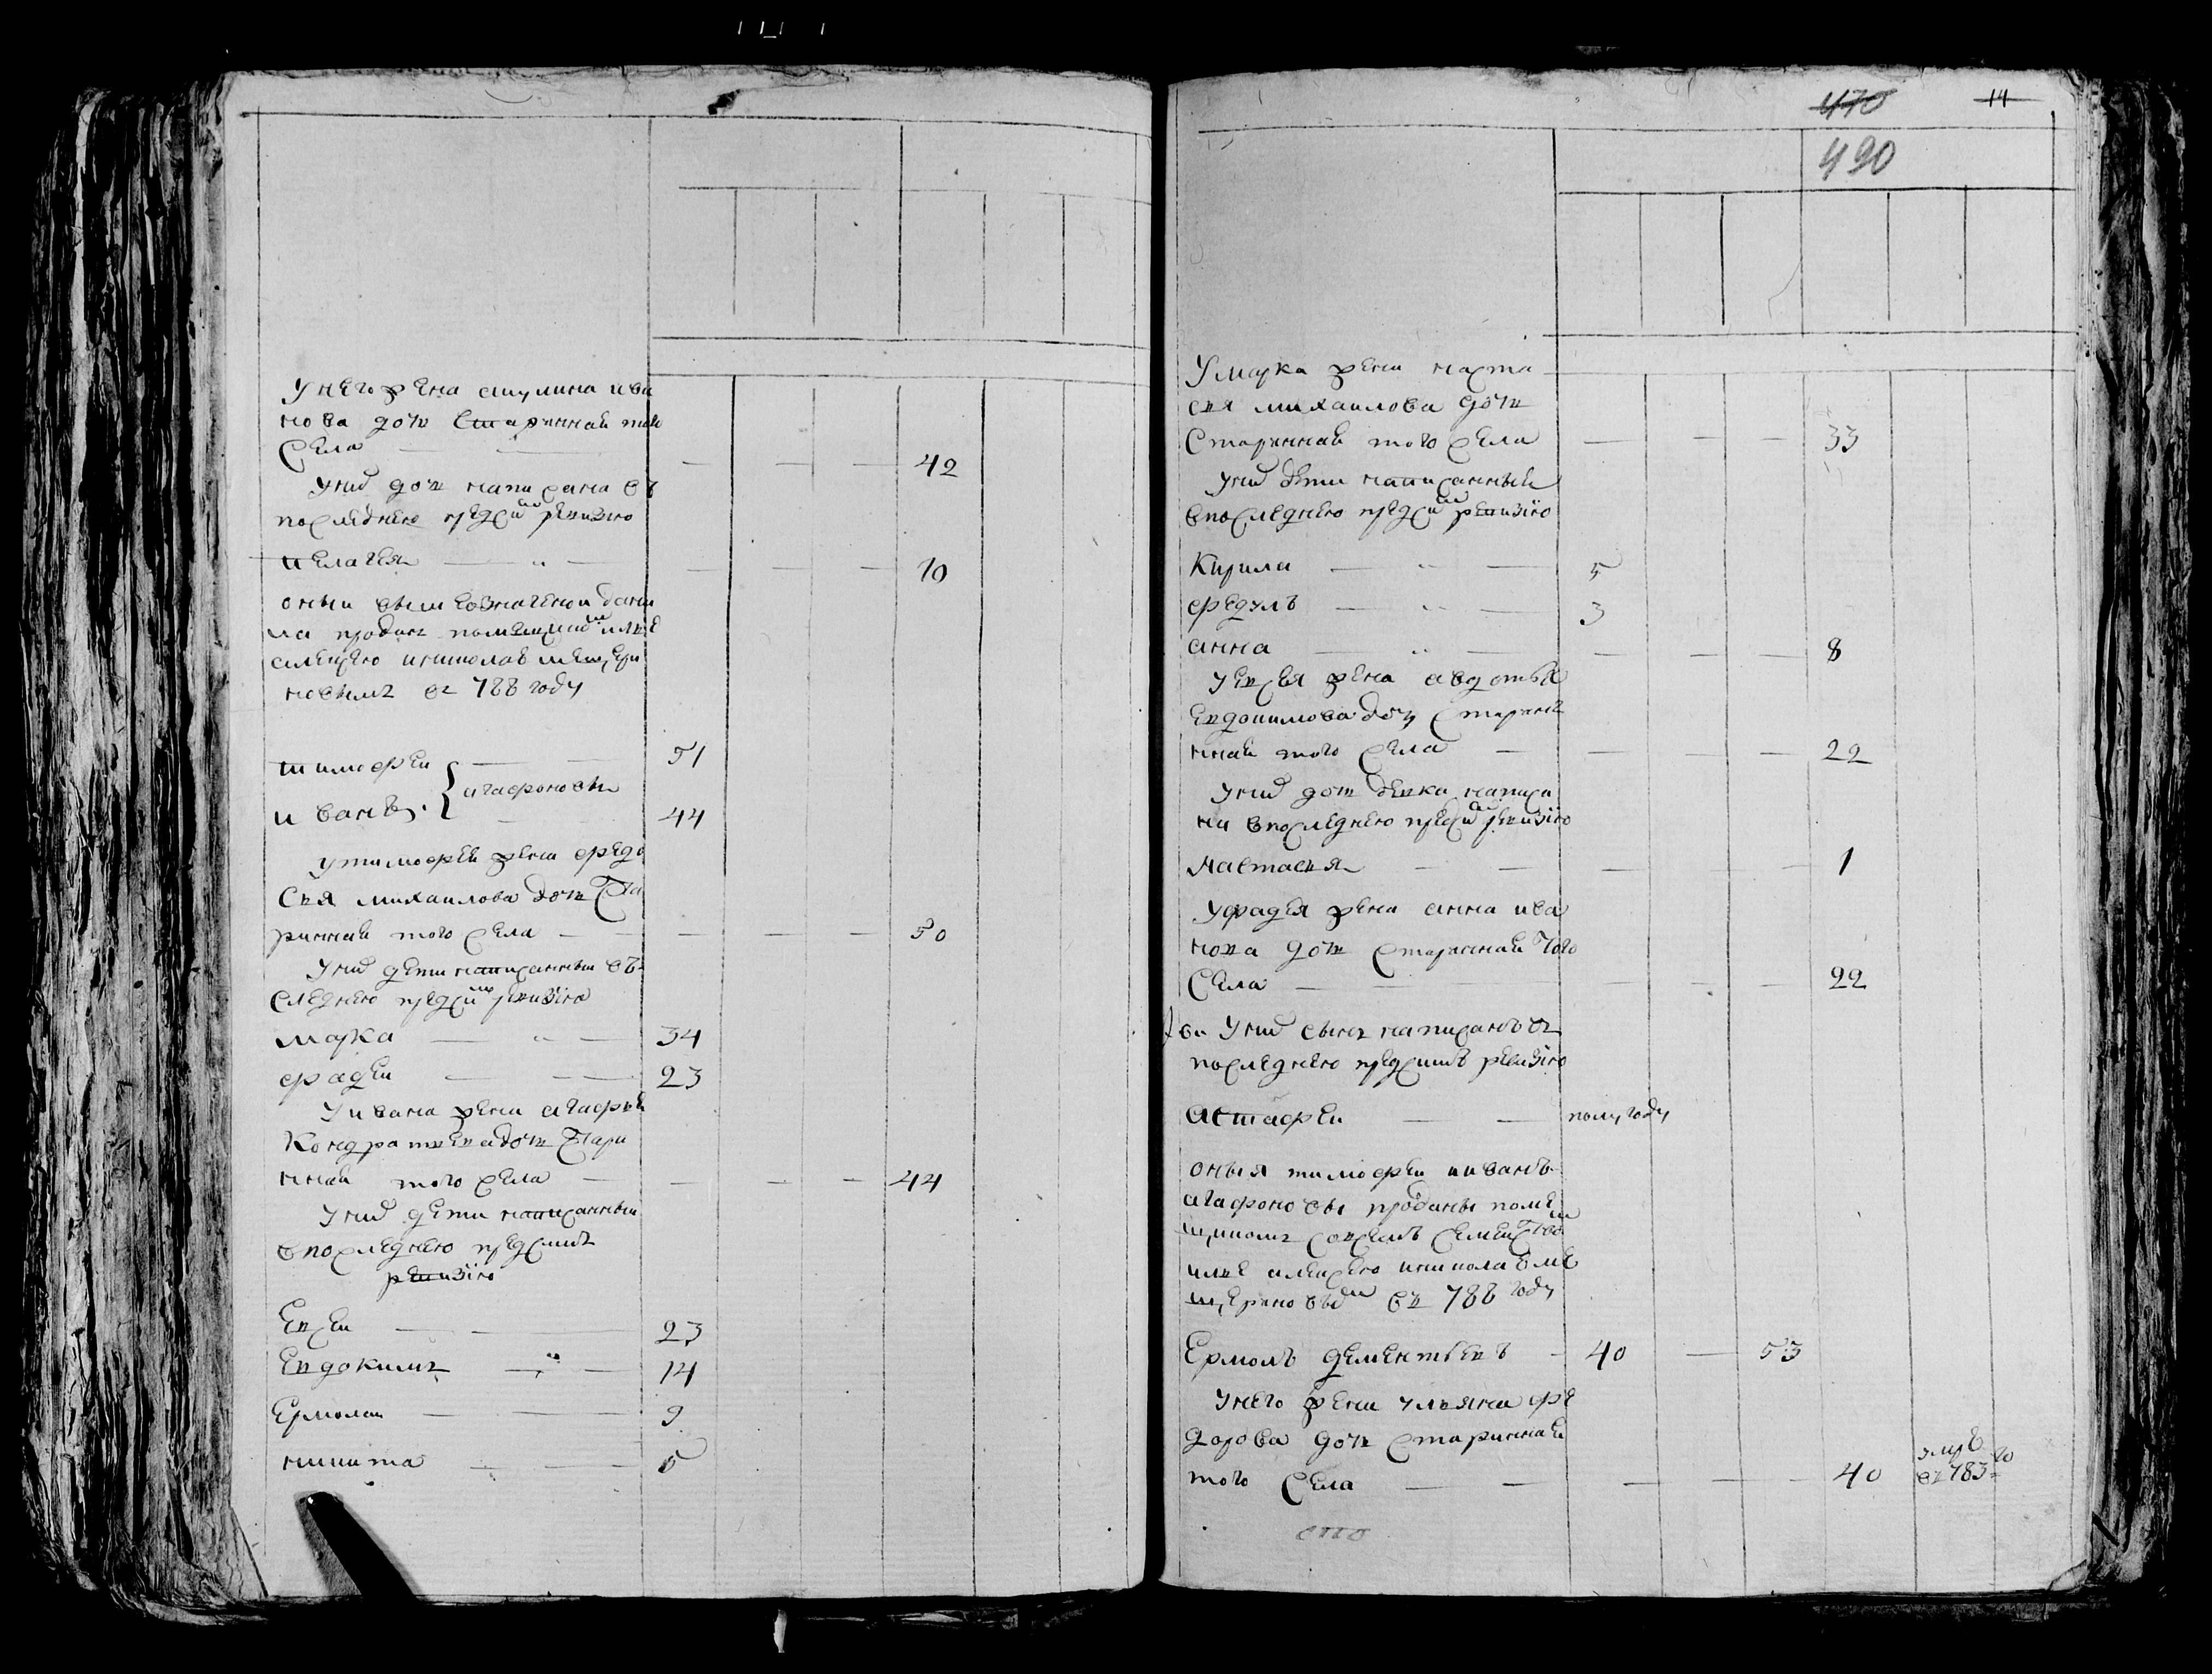 У него жена акулина ива
нова доч старинная того
Села — 42
У них доч написана въ
последнею пред сим ревизию
пелагея — 10
оныи вышеозначенои дани
ла продан помещикам илье
алексею и николаю мещери
новымъ въ 788 году
тимофеи 51
иванъ } агафоновы 44
у тимофея жена федо
сья михаилова доч ста
ринная того села — 50
У них дети написанныи въ по
следнею пред сим ревизию
марка — 34
фадеи — 23
У ивана жена агафья
Кондратьева доч стари
нная того села — 44
У них дети написанныи
в последнею пред симъ
ревизию
Евсеи — 23
Евдокимъ — 14
Ермолаи — 9
никита — 5
470 14
490
У марка жена наста
сья михаилова доч
Старинная того села — 33
У них дети написанныи
в последнею пред сим ревизию
Кирила — 5
федулъ — 3
анна — 8
У евсея жена авдотья
Евдокимова доч старин
нная того села — 22
У них доч девка написа
на в последнею пред сим ревизию
Настасья — 1
У фадея жена анна ива
нова доч старинная того
Села — 22
У них сынъ написанъ въ
последнею пред симъ ревизию
Астафеи — полу году
оныя тимофеи и иванъ
агафоновы проданы поме
щикомъ совсемъ семеиством
илье алексею и николаю ме
щериновым въ 788 году
Ермолъ дементьевъ — 40 — 53
У него жена ульяна фе
дорова доч старинная
того Села — 40 умре въ 783 го